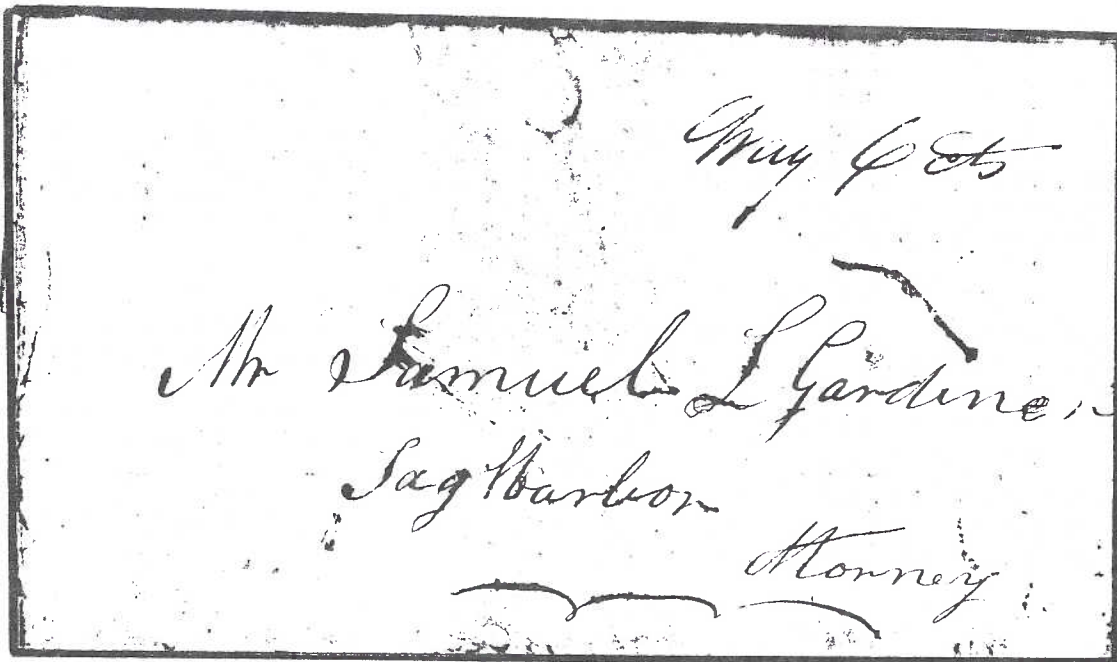 Way 6 cts
Mr Samuel L Gardiner
Sag Harbor
Attorney